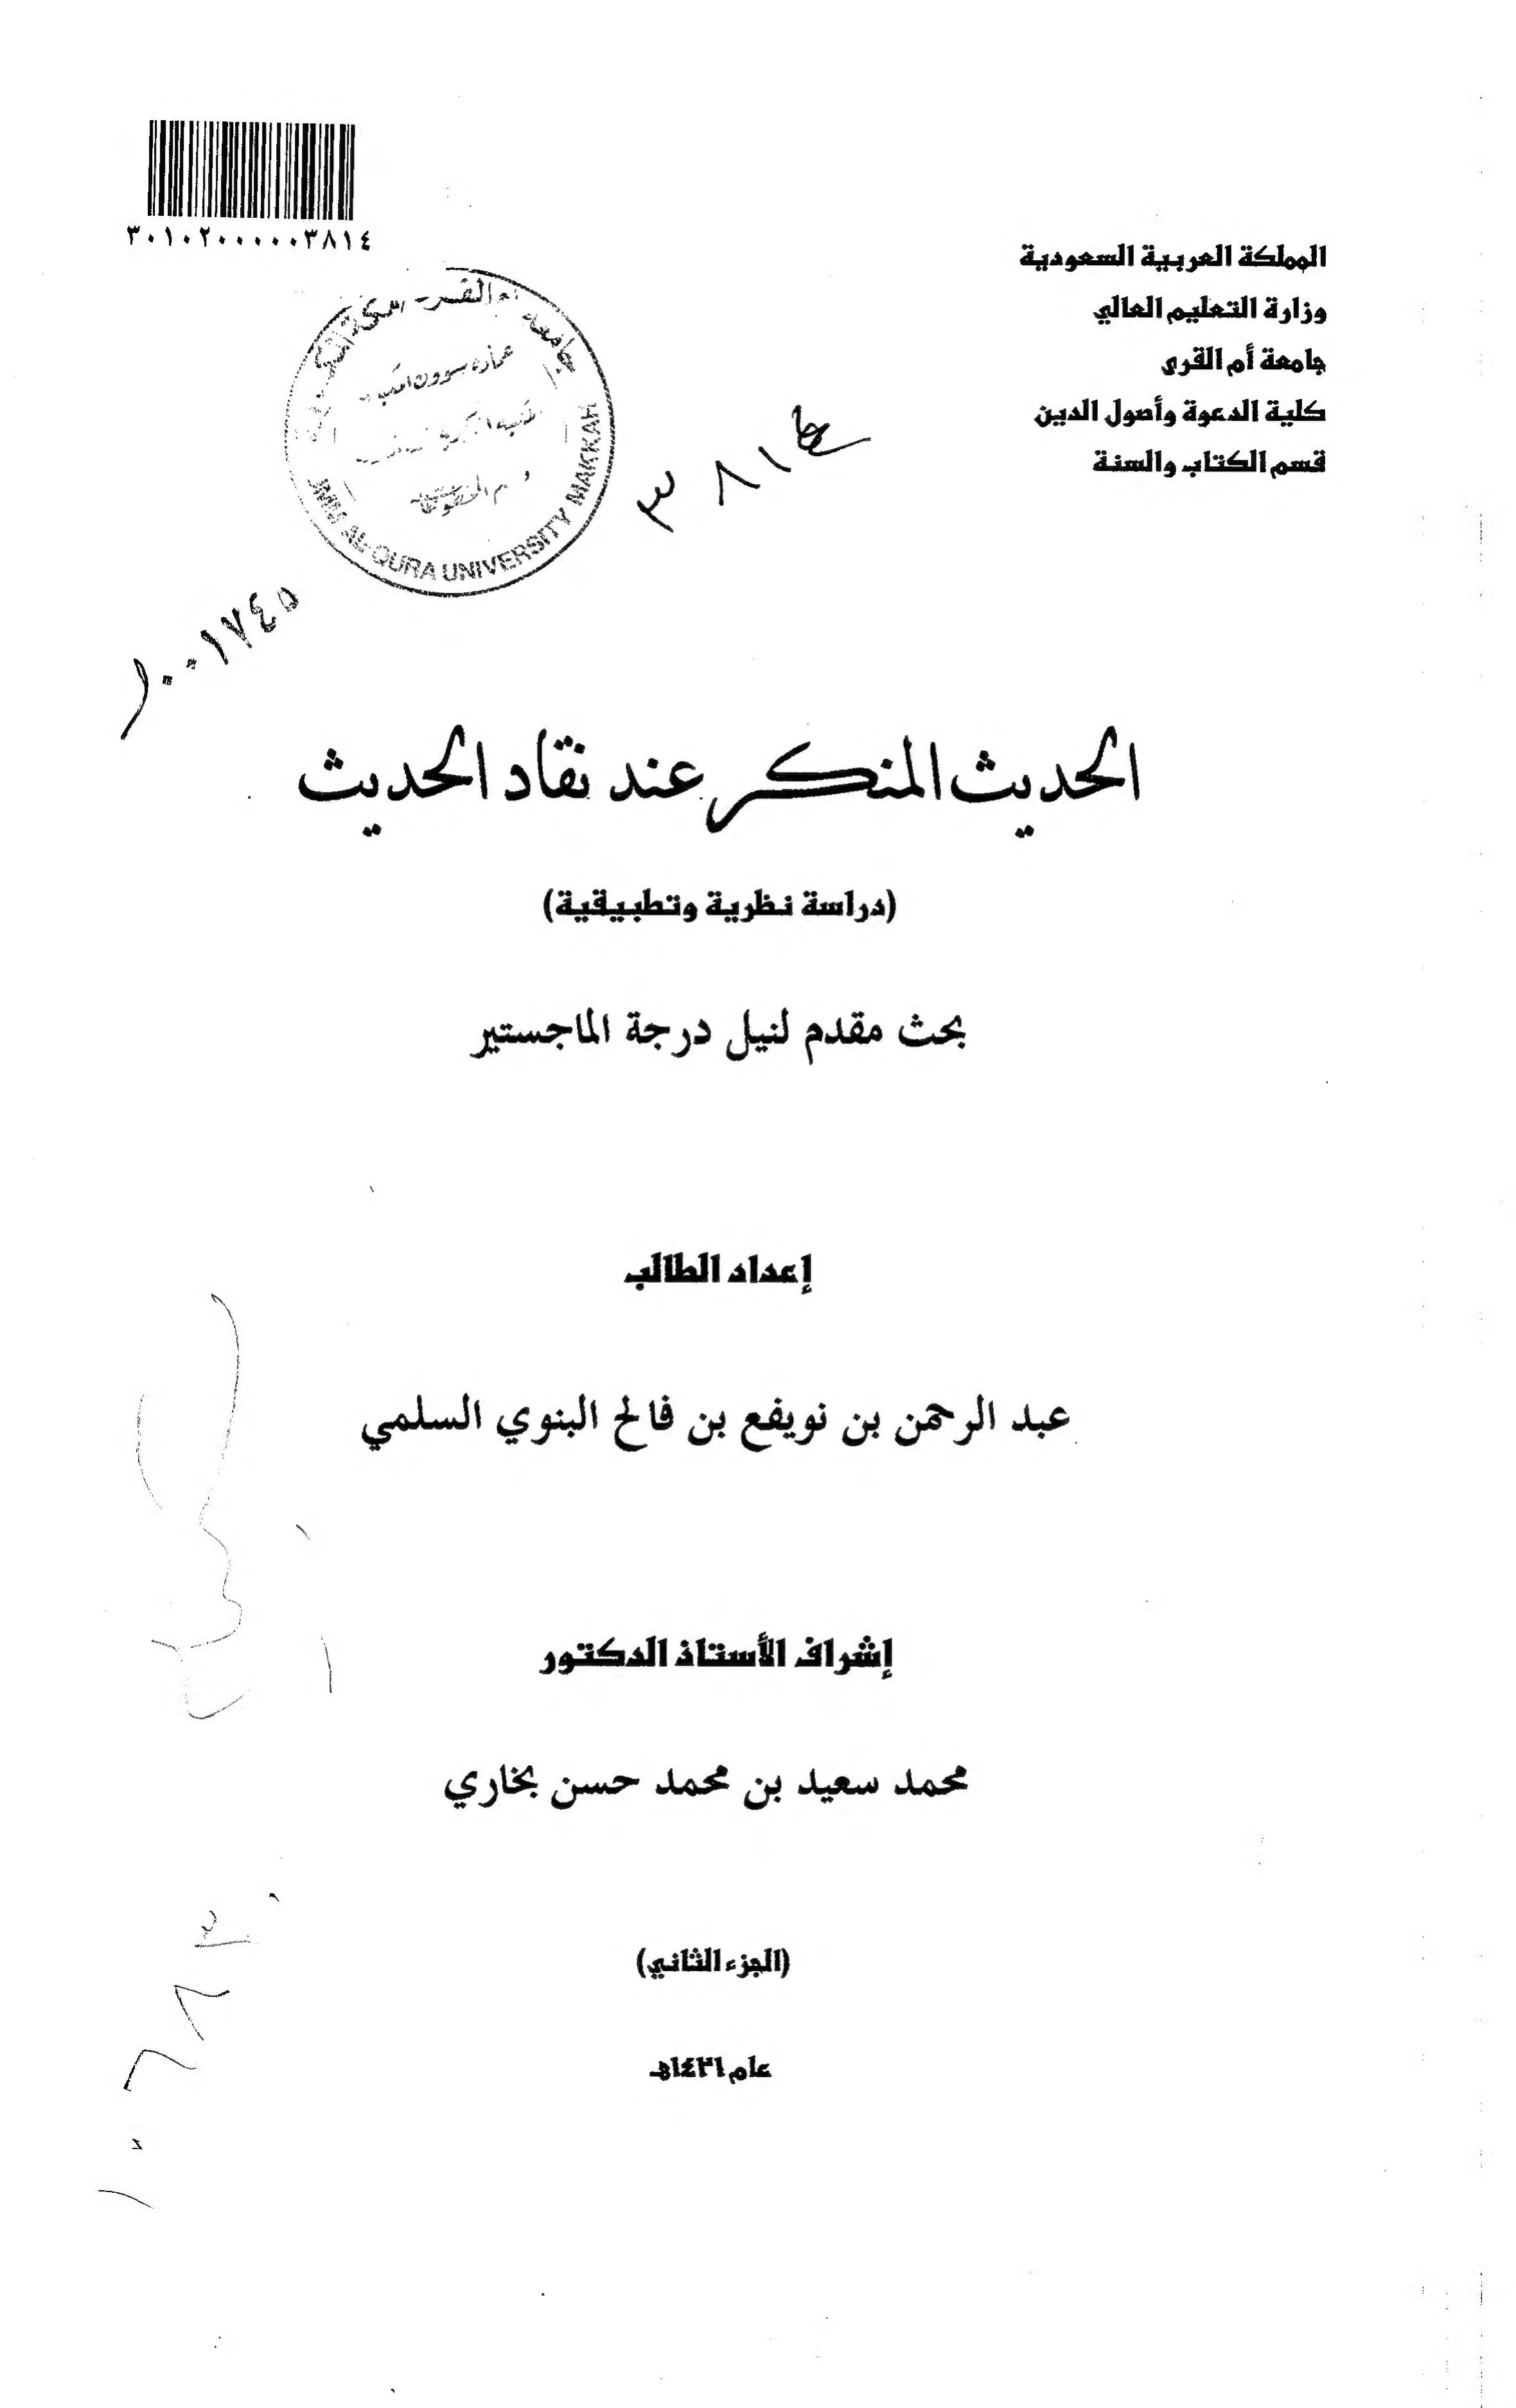 المملكة العربية السعودية
وزارة التعليم العالي
جامعة أم القرى
كلية الدعوة وأصول الدين
قسم الكتاب والسنة
٣٠١٠٢٠٠٠٠٠٣٨١٤
جامعة أم القرى
UMM AL-QURA UNIVERSITY MAKKAH
٣٨١٤
١٠٠١٧٤٥
الحديث المنكر عند نقاد الحديث
(دراسة نظرية وتطبيقية)
بحث مقدم لنيل درجة الماجستير
إعداد الطالب
عبد الرحمن بن نويفع بن فالح البنوي السلمي
إشراف الأستاذ الدكتور
محمد سعيد بن محمد حسن بخاري
(الجزء الثاني)
عام ١٤٢١هـ